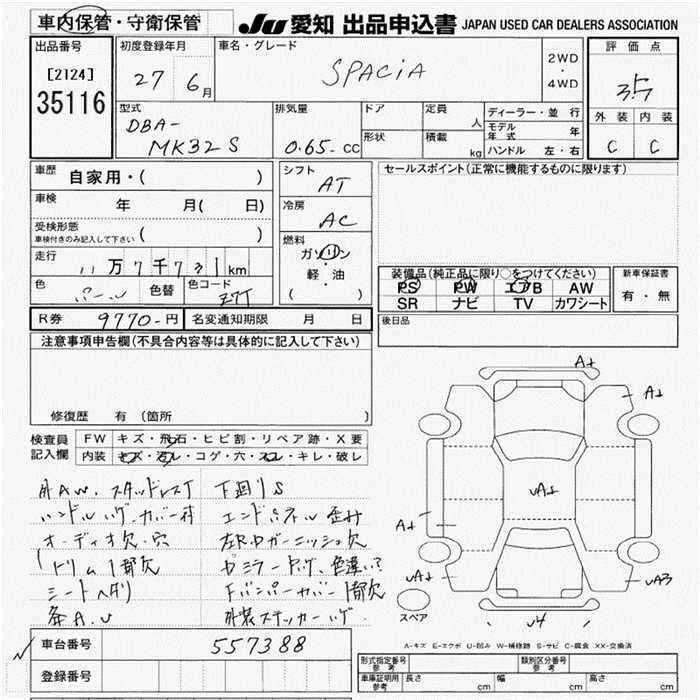 車内保管・守衛保管
JU 愛知 出品申込書 JAPAN USED CAR DEALERS ASSOCIATION
出品番号
[2124]
35116
初度登録年月
27 6月
車名・グレード
SPACiA
2WD
・
4WD
評価点
3.5
外装 内装
C C
型式
DBA-
MK32S
排気量
0.65- CC
ドア
形状
定員
人
積載
kg
ディーラー・並行
モデル年式 年
ハンドル 左・右
車歴
自家用・( )
車検 年 月( 日)
受検形態
車検付きのみ記入して下さい ( )
走行
11万7千731km
色 パール 色替 色コード Z7T
シフト
AT
冷房
AC
燃料
ガソリン
・
軽・油
( )
セールスポイント(正常に機能するものに限ります)
装備品(純正品に限り○をつけてください)
PS PW エアB AW
SR ナビ TV カワシート
新車保証書
有・無
R券 9770-円 名変通知期限 月 日
後日品
注意事項申告欄(不具合内容等は具体的に記入して下さい)
修復歴 有(箇所 )
検査員
記入欄
FW キズ・飛石・ヒビ割・リペア跡・X要
内装 キズ・汚レ・コゲ・穴・スレ・キレ・破レ
外AW.スタッドレスT
下廻りS
ハンドルハゲ.カバー付
エンドパネル歪み
オーディオ欠.穴
左RドアガーニッシュЯ欠
トリム1部欠
ドミラーキズ、色違い?
シートヘタリ
Fバンパーカバー1部欠
条A.U
外装ステッカーハゲ
A+
A+
UA+
A+
UA+
UA3
U4
スペア
A-キズ E-エクボ U-凹み W-補修跡 S-サビ C-腐食 XX-交換済
車台番号 557388
登録番号
形式指定番号
参考
類別区分番号
参考
車庫証明用
参考
長さ cm 幅 cm 高さ cm